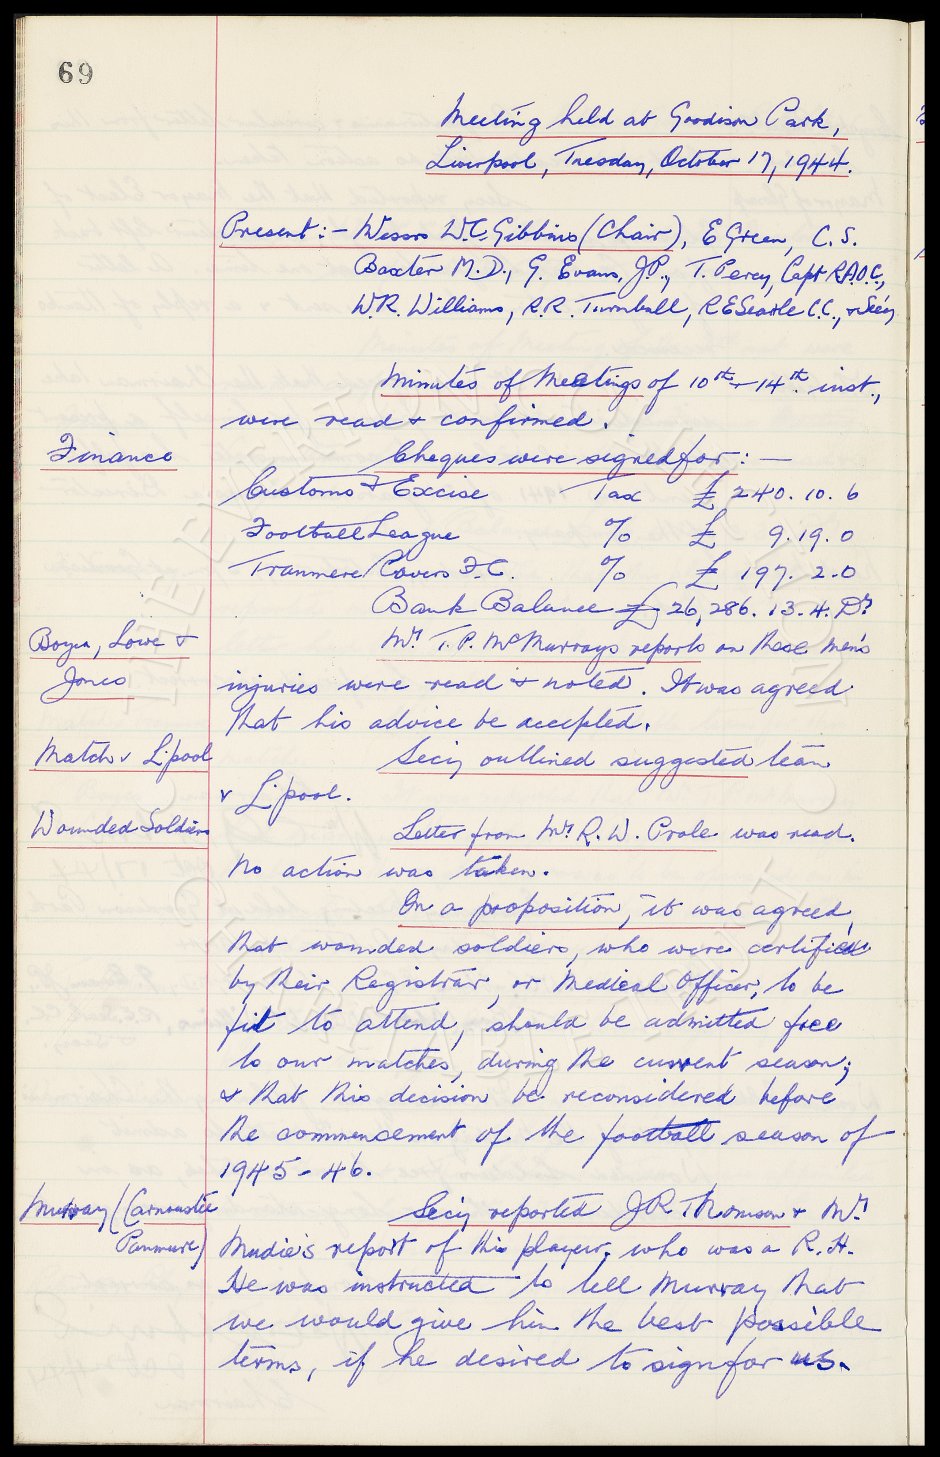 69
Meeting held at Goodison Park,
Liverpool, Tuesday, October 17, 1944.
Present:- Messrs W.C. Gibbins (Chair), E Green, C. S.
Baxter M.D., G. Evans, J.P., T. Percy, Capt R.A.O.C.,
W.R. Williams, R.R. Turnbull, R E Searle C.C., & Sec'y
Minutes of Meetings of 10th & 14th inst.,
were read & confirmed.
Finance
Cheques were signed for: -
Customs & Excise Tax £ 240. 10. 6
Football League % £ 9. 19. 0
Tranmere Rovers F.C. % £ 197. 2. 0
Bank Balance £ 26,286. 13. 4. Dr
Boyes, Lowe & Jones
Mr T. P. McMurrays reports on these men's
injuries were read & noted. It was agreed
that his advice be accepted.
Match v L'pool
Sec'y outlined suggested team
v L'pool.
Wounded Soldiers
Letter from Mr R. W. Prole was read.
No action was taken.
On a proposition, it was agreed,
that wounded soldiers, who were certified
by their Registrar, or Medical Officer, to be
fit to attend, should be admitted free
to our matches, during the current season;
& that this decision be reconsidered before
the commencement of the football season of
1945-46.
Murray (Carnoustie
Panmure)
Sec'y reported J R Thomson & Mr
Mudie's report of this player, who was a R. H.
He was instructed to tell Murray that
we would give him the best possible
terms, if he desired to sign for us.